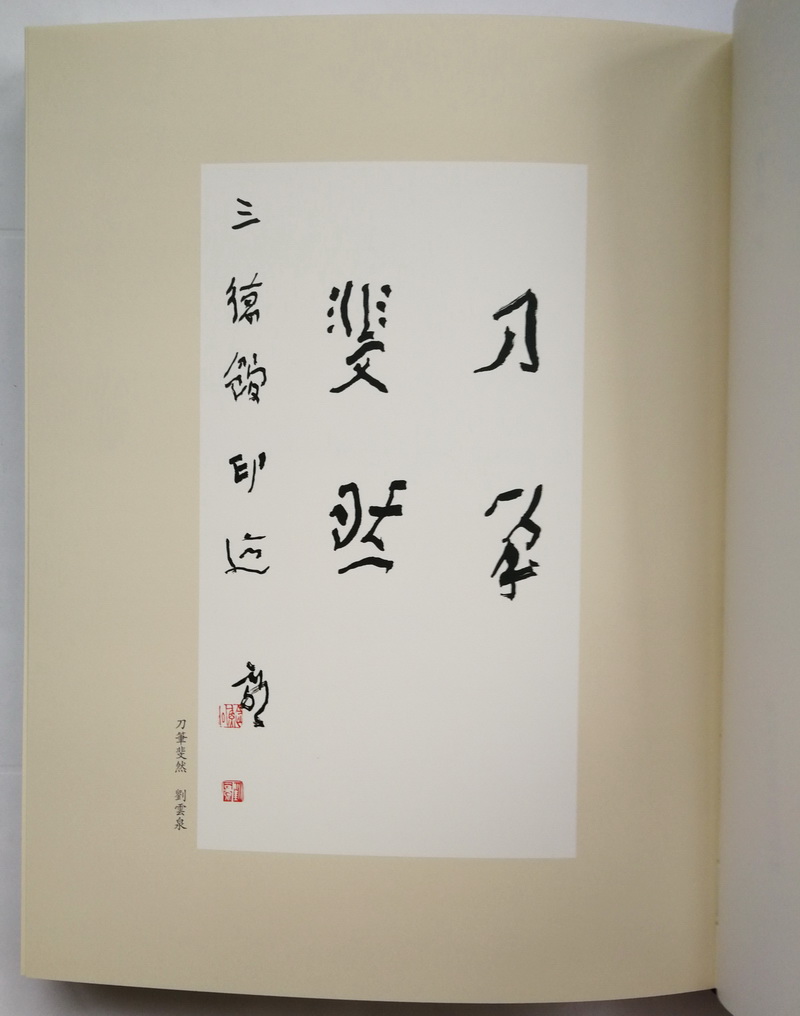 刀筆
斐然
三德館印迹
刀筆斐然 劉雲泉